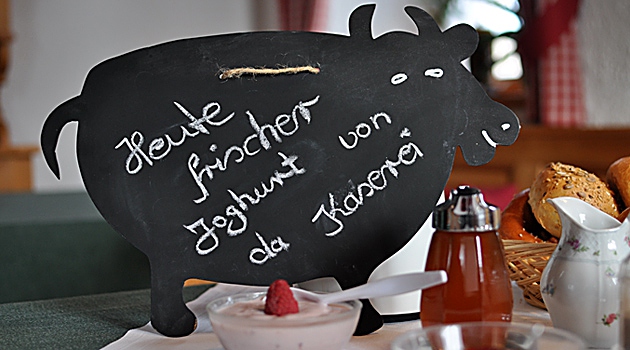 Heute frischer
Joghurt von
da Kaserei